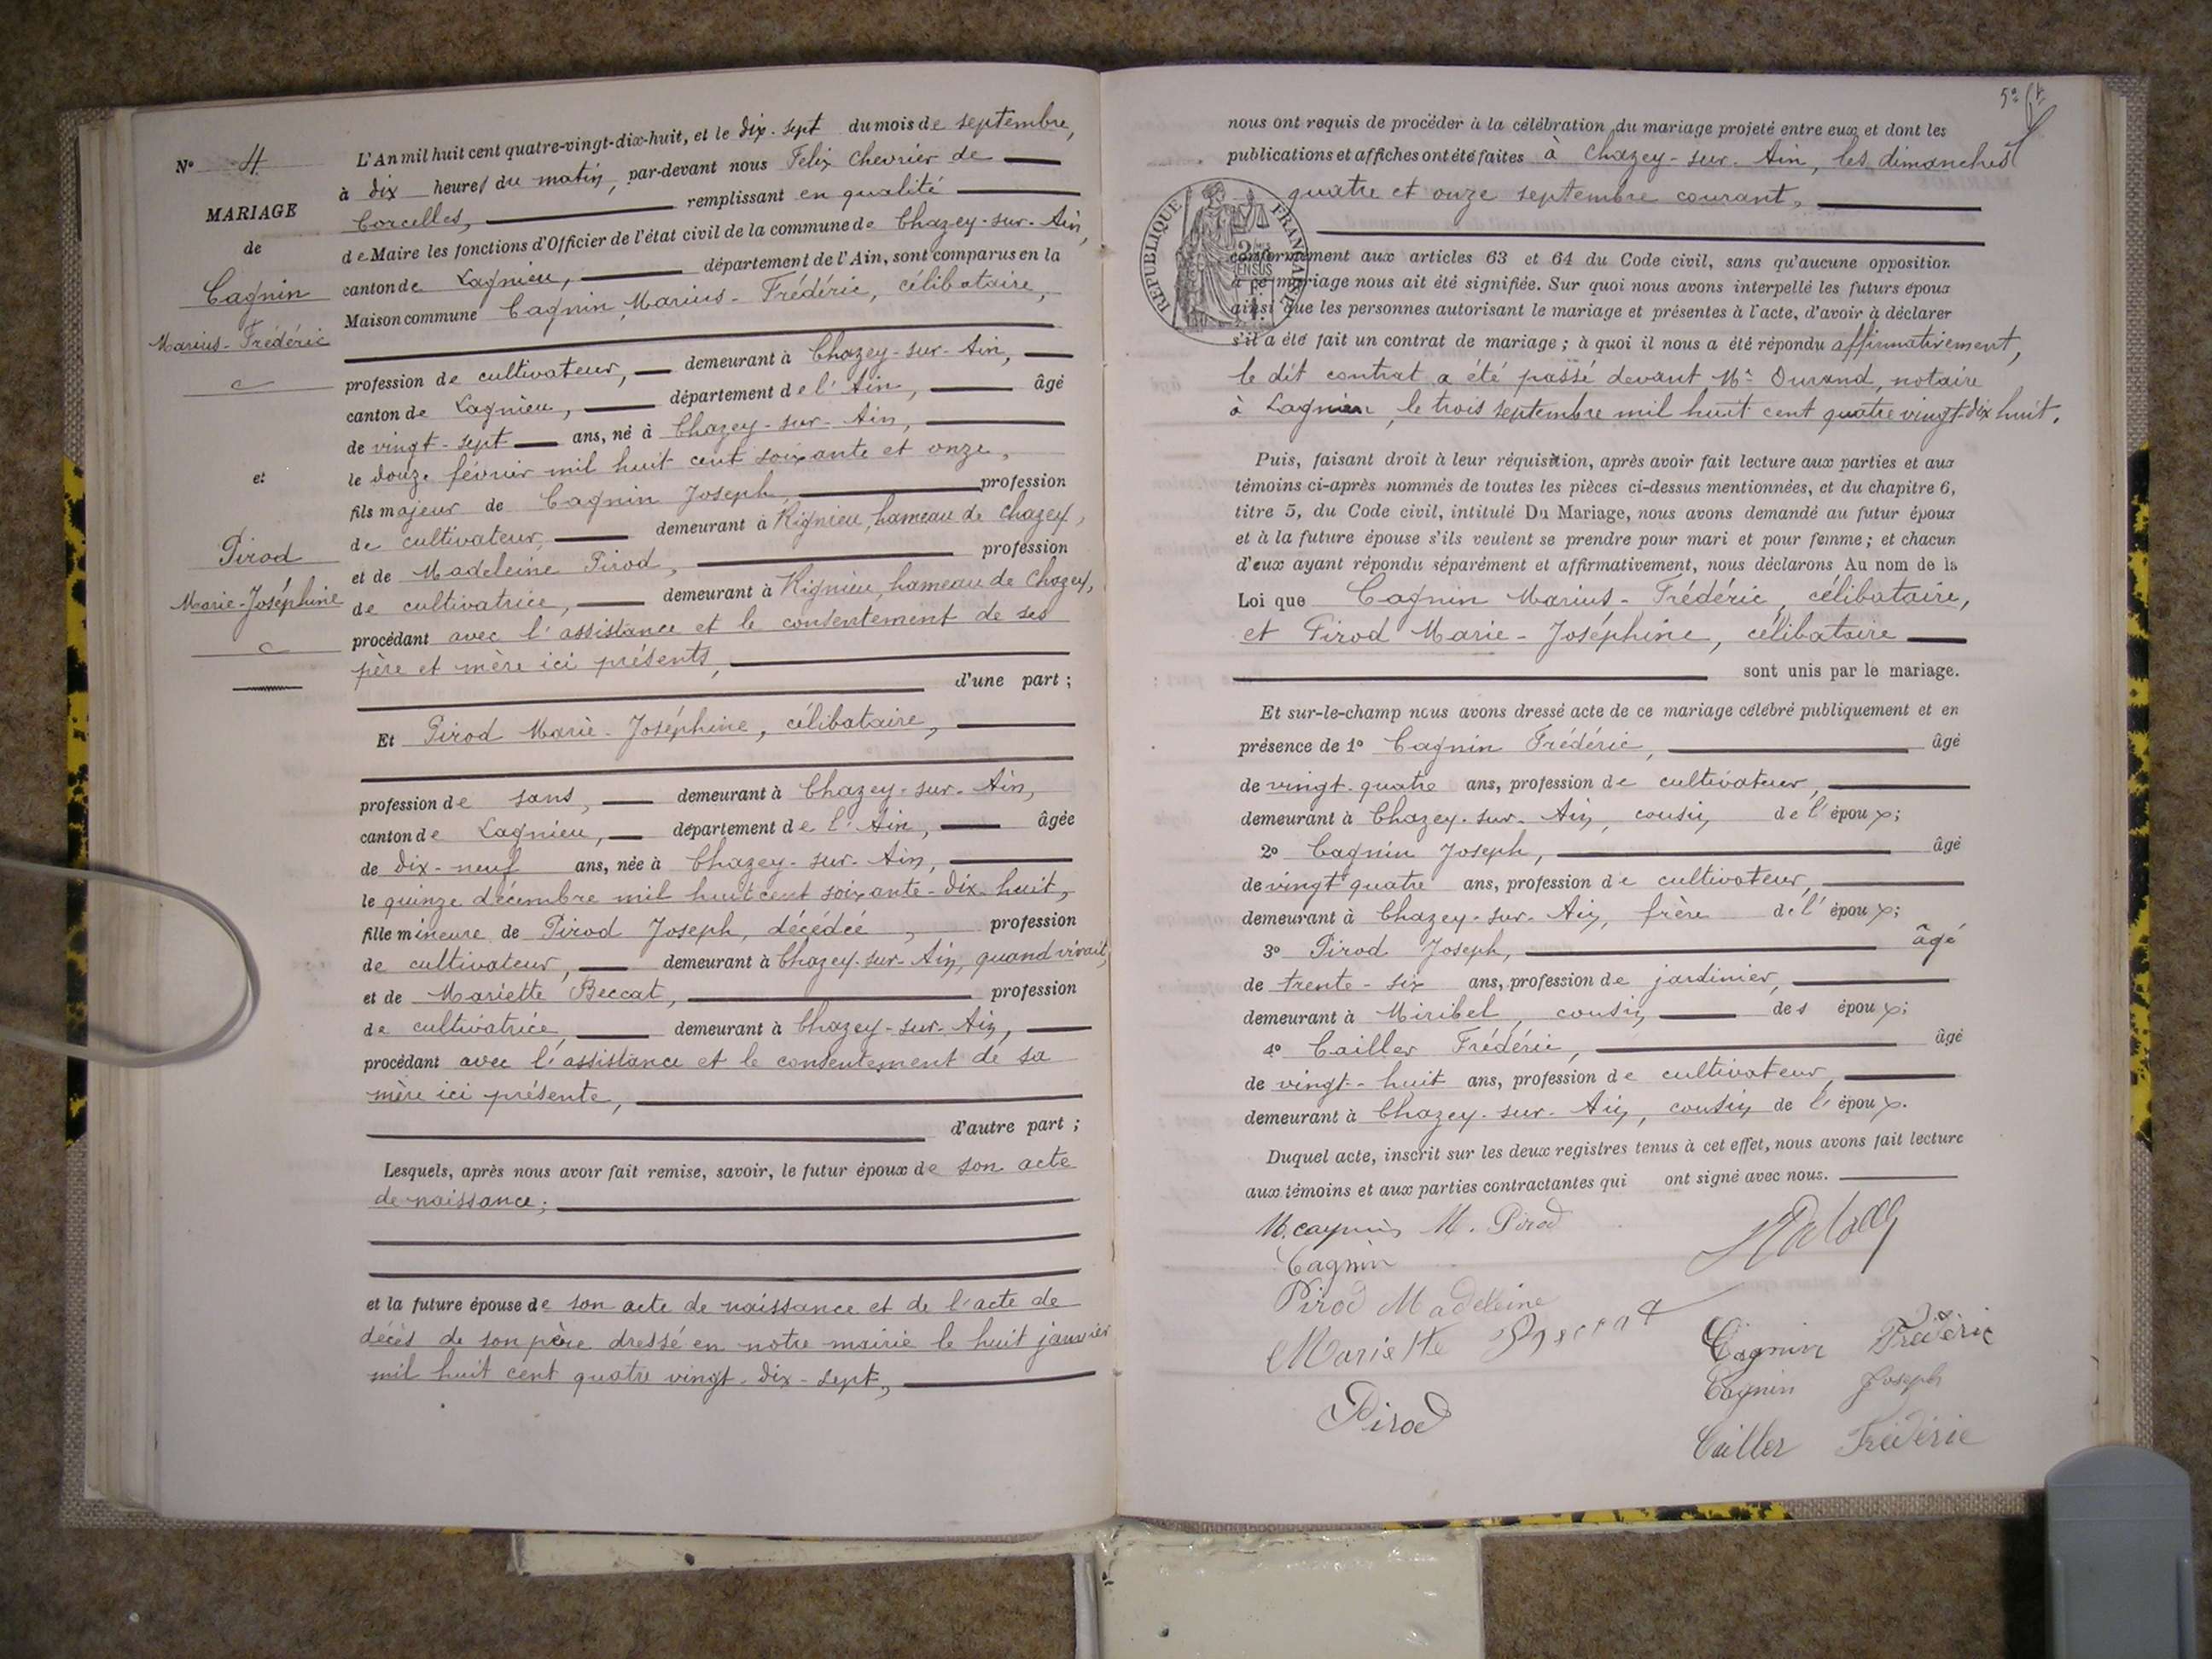 N° 4
MARIAGE
de
Cagnin
Marius-Frédéric
et
Pirod
Marie-Joséphine
L'An mil huit cent quatre-vingt-dix-huit, et le dix-sept du mois de septembre,
à dix heures du matin, par-devant nous Felix Chevrier de
Corcelles, remplissant en qualité
de Maire les fonctions d'Officier de l'état civil de la commune de Chazey-sur-Ain,
canton de Lagnieu, département de l'Ain, sont comparus en la
Maison commune Cagnin Marius-Frédéric, célibataire,
profession de cultivateur, demeurant à Chazey-sur-Ain,
canton de Lagnieu, département de l'Ain, âgé
de vingt-sept ans, né à Chazey-sur-Ain,
le douze février mil huit cent soixante et onze,
fils majeur de Cagnin Joseph, profession
de cultivateur, demeurant à Rignieu, hameau de Chazey,
et de Madeleine Pirod, profession
de cultivatrice, demeurant à Rignieu, hameau de Chazey,
procédant avec l'assistance et le consentement de ses
père et mère ici présents,
d'une part ;
Et Pirod Marie-Joséphine, célibataire,
profession de sans, demeurant à Chazey-sur-Ain,
canton de Lagnieu, département de l'Ain, âgée
de dix-neuf ans, née à Chazey-sur-Ain,
le quinze décembre mil huit cent soixante-dix-huit,
fille mineure de Pirod Joseph, décédée, profession
de cultivateur, demeurant à Chazey-sur-Ain, quand vivait,
et de Mariette Beccat, profession
de cultivatrice, demeurant à Chazey-sur-Ain,
procédant avec l'assistance et le consentement de sa
mère ici présente,
d'autre part ;
Lesquels, après nous avoir fait remise, savoir, le futur époux de son acte
de naissance;
et la future épouse de son acte de naissance et de l'acte de
décès de son père dressé en notre mairie le huit janvier
mil huit cent quatre vingt-dix-sept,
nous ont requis de procéder à la célébration du mariage projeté entre eux et dont les
publications et affiches ont été faites à Chazey-sur-Ain, les dimanches
quatre et onze septembre courant,
RÉPUBLIQUE FRANÇAISE
conformément aux articles 63 et 64 du Code civil, sans qu'aucune opposition
à ce mariage nous ait été signifiée. Sur quoi nous avons interpellé les futurs époux
ainsi que les personnes autorisant le mariage et présentes à l'acte, d'avoir à déclarer
s'il a été fait un contrat de mariage ; à quoi il nous a été répondu affirmativement,
le dit contrat a été passé devant Me Durand, notaire
à Lagnieu, le trois septembre mil huit cent quatre vingt-dix huit.
Puis, faisant droit à leur réquisition, après avoir fait lecture aux parties et aux
témoins ci-après nommés de toutes les pièces ci-dessus mentionnées, et du chapitre 6,
titre 5, du Code civil, intitulé Du Mariage, nous avons demandé au futur époux
et à la future épouse s'ils veulent se prendre pour mari et pour femme ; et chacun
d'eux ayant répondu séparément et affirmativement, nous déclarons Au nom de la
Loi que Cagnin Marius-Frédéric, célibataire,
et Pirod Marie-Joséphine, célibataire
sont unis par le mariage.
Et sur-le-champ nous avons dressé acte de ce mariage célébré publiquement et en
présence de 1° Cagnin Frédéric, âgé
de vingt-quatre ans, profession de cultivateur,
demeurant à Chazey-sur-Ain, cousin de l'époux;
2° Cagnin Joseph, âgé
de vingt quatre ans, profession de cultivateur,
demeurant à Chazey-sur-Ain, frère de l'époux;
3° Pirod Joseph, âgé
de trente-six ans, profession de jardinier,
demeurant à Miribel, cousin des époux;
4° Cailler Frédéric, âgé
de vingt-huit ans, profession de cultivateur,
demeurant à Chazey-sur-Ain, cousin de l'époux.
Duquel acte, inscrit sur les deux registres tenus à cet effet, nous avons fait lecture
aux témoins et aux parties contractantes qui ont signé avec nous.
M. cagnin M. Pirod
Cagnin
Pirod Madeleine
Mariette
Cagnin Frédéric
Cagnin Joseph
Pirod
Cailler Frédéric